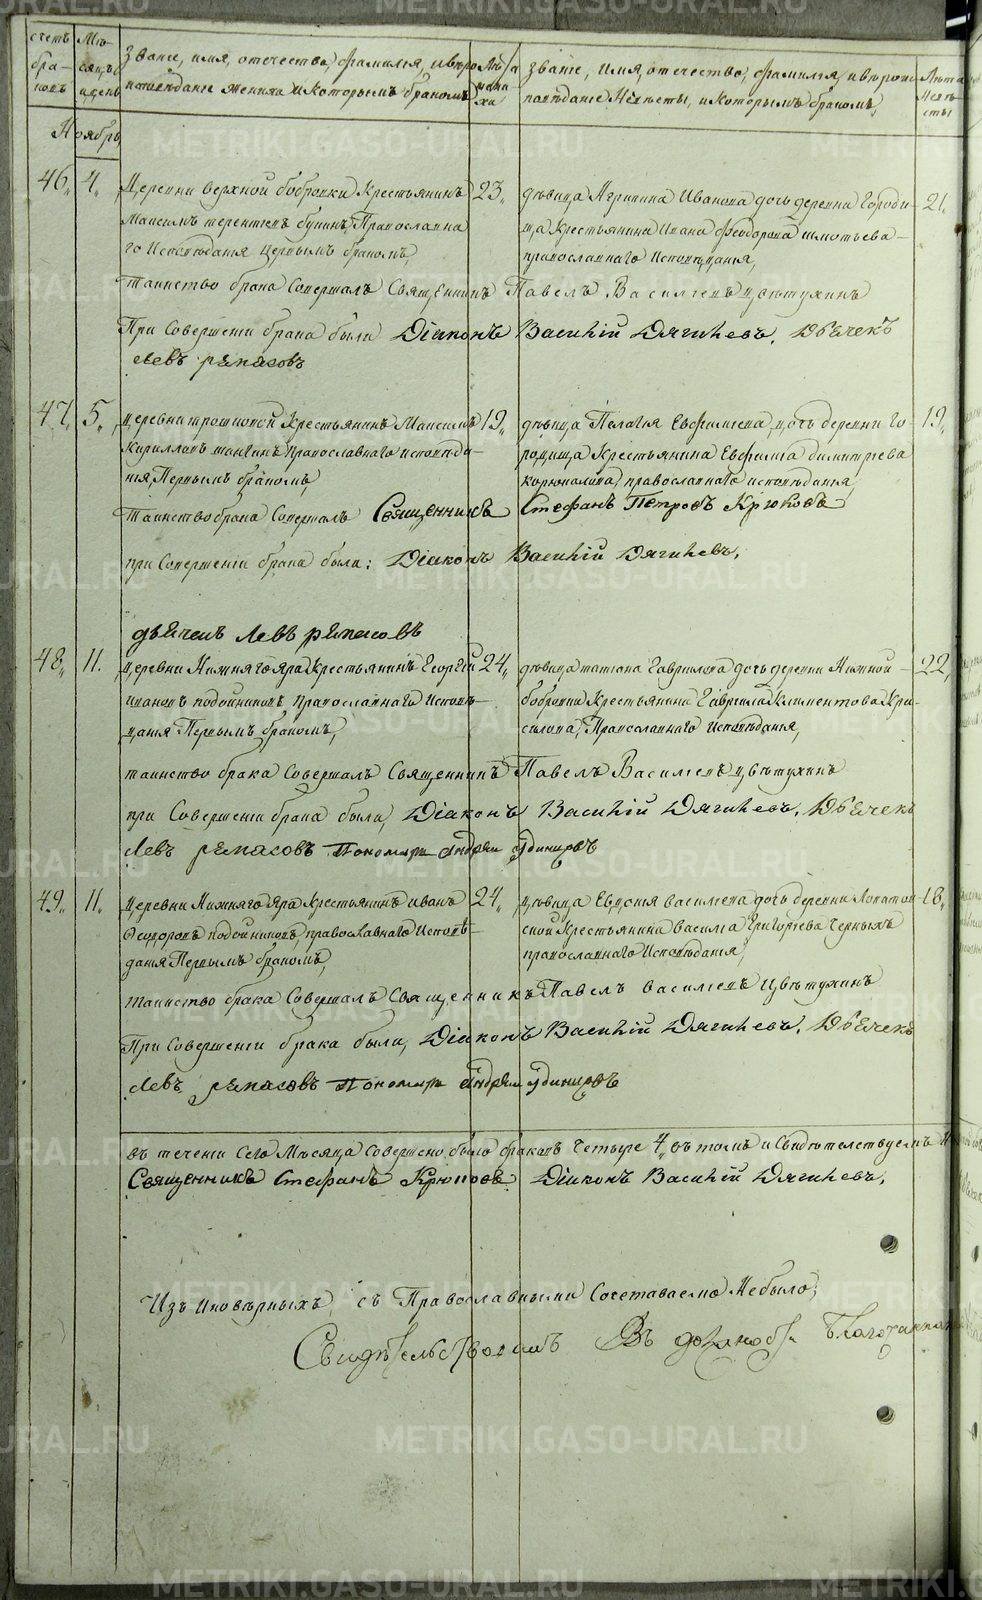 METRIKI.GASO-URAL.RU
счетъ браковъ
Мѣсяцъ и день
Званіе, имя, отечество, фамилія, и вѣроисповѣданіе жениха и которымъ бракомъ
Лѣта жениха
Званіе, имя, отечество, фамилія, и вѣроисповѣданіе Невѣсты, и которымъ бракомъ,
Лѣта Невѣсты
Ноябрь
46, 4,
Деревни верхной бобровки Крестьянинъ 23,
Максимъ терентіевъ бунинъ, Православна
го Исповѣданія первымъ бракомъ,
дѣвица Агрипина Иванова дочь деревни Городи- 21,
ща Крестьянина Ивана Феодорова
православнаго Исповѣданія,
таинство брака Совершалъ Священникъ Павелъ Василіевъ Цвѣтухинъ
При Совершеніи брака были Діаконъ Василій Дягилевъ, Дьячекъ
Левъ ремезовъ
47, 5,
Деревни Крестьянинъ Максимъ 19,
Кирилловъ православнаго исповѣда-
нія, Первымъ бракомъ,
дѣвица Пелагія Евфиміева, дочь деревни го- 19,
родища Крестьянина Евфимія димитріева
православнаго исповѣданія,
таинство брака Совершалъ Священникъ Стефанъ Петровъ Крюковъ
при Совершеніи брака были: Діаконъ Василій Дягилевъ,
дьячекъ Левъ ремезовъ
48, 11.
Деревни Нижняго Яра Крестьянинъ Георгій 24,
ивановъ подойниковъ православнаго Исповѣ-
данія Первымъ бракомъ,
дѣвица татіана Гавриилова дочь деревни Нижной 22,
бобровки Крестьянина Гавриила Климентова Кри-
силова, Православнаго Исповѣданія,
таинство брака Совершалъ Священникъ Павелъ Василіевъ цвѣтухинъ
при Совершеніи брака были, Діаконъ Василій Дягилевъ, Дьячекъ
Левъ ремезовъ Пономарь Андрей Удинцовъ
49, 11,
Деревни Нижняго Яра Крестьянинъ иванъ 24,
Ѳедоровъ подойниковъ, православнаго Исповѣ-
данія Первымъ бракомъ,
дѣвица Евдокія василіева дочь деревни Лопатов 18,
ской Крестьянина Василія Григоріева Черныхъ
православнаго Исповѣданія,
таинство брака Совершалъ Священникъ Павелъ василіевъ Цвѣтухинъ
При Совершеніи брака были, Діаконъ Василій Дягилевъ, Дьячекъ
Левъ ремезовъ Пономарь Андрей Удинцовъ
въ теченіи Сего Мѣсяца Совершено было браковъ Четыре 4, въ томъ и Свидѣтельствуемъ
Священникъ Стефанъ Крюковъ Діаконъ Василій Дягилевъ,
Изъ иновѣрныхъ съ Православными Сочетаваемо Небыло;
Свидѣтельствовалъ Въ должности Благочиннаго